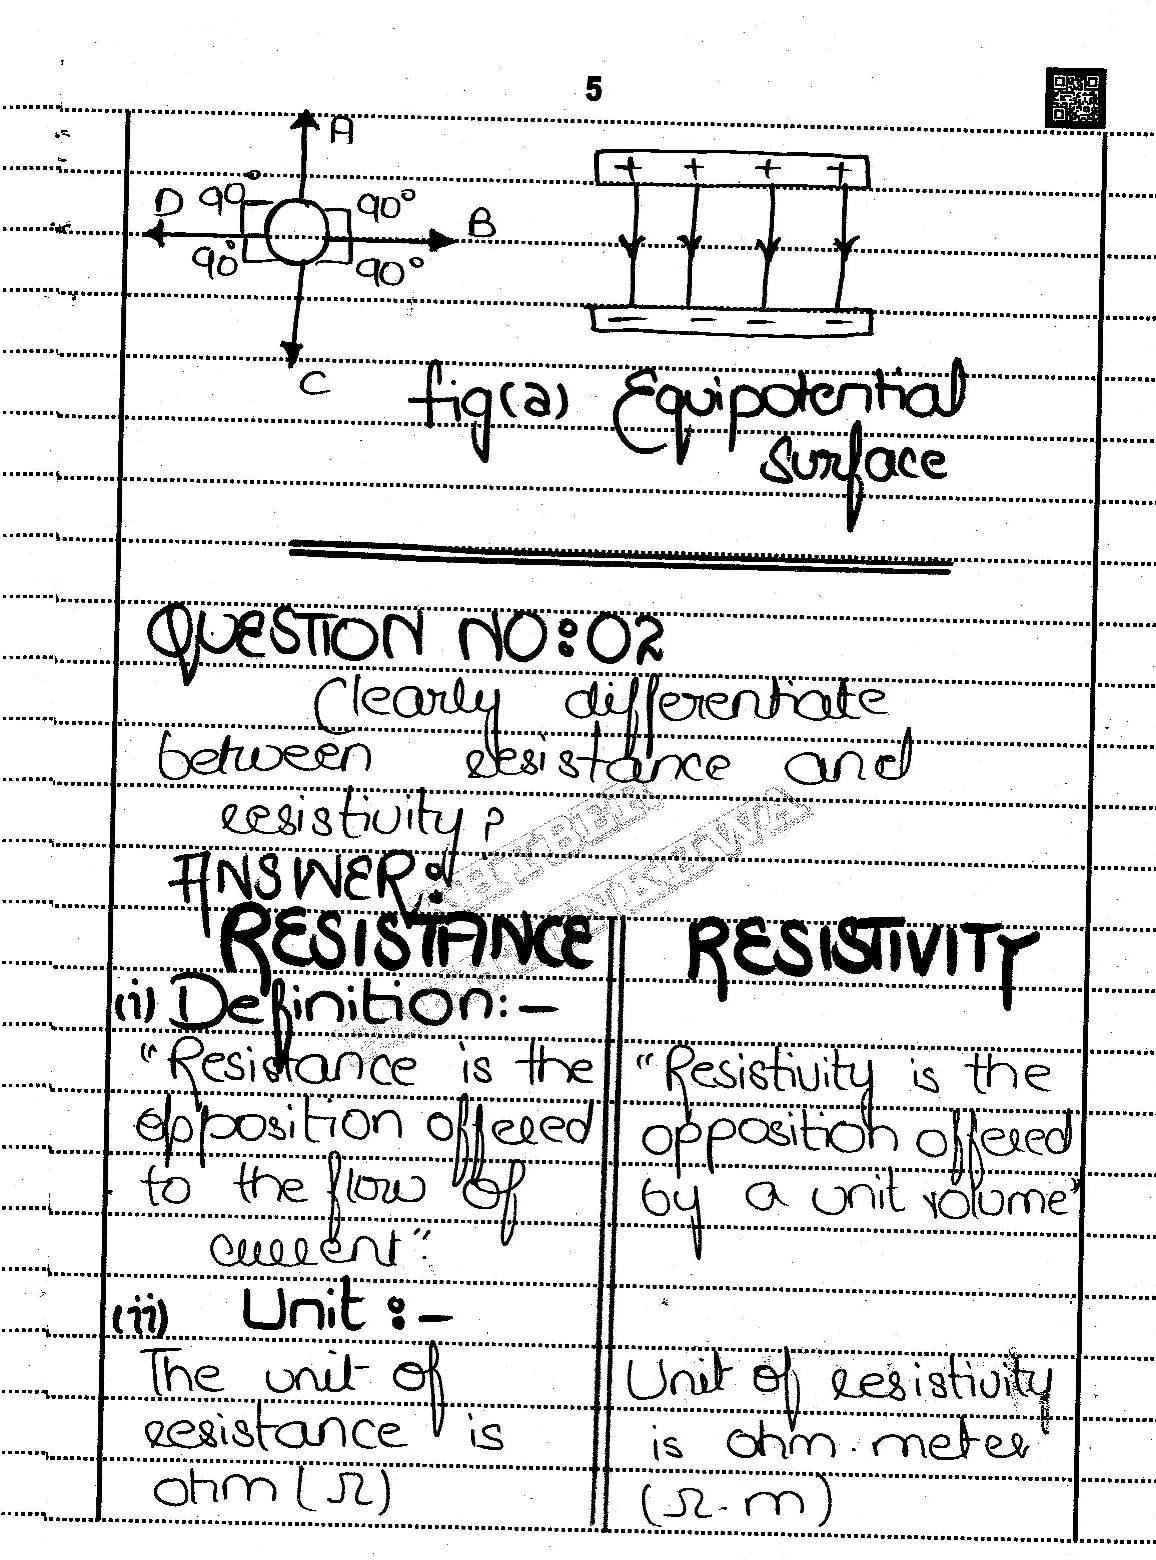 5
A
D 90° 90° B
90° 90°
C
+ + + +
- - - -
fig(a) Equipotential
surface
QUESTION NO:02
Clearly differentiate
between resistance and
resistivity?
ANSWER:
KHYBER
PAKHTUNKHWA
RESISTANCE RESISTIVITY
(i) Definition:-
"Resistance is the
opposition offered
to the flow of
current".
"Resistivity is the
opposition offered
by a unit volume"
(ii) Unit:-
The unit of
resistance is
ohm (Ω)
Unit of resistivity
is ohm.meter
(Ω.m)